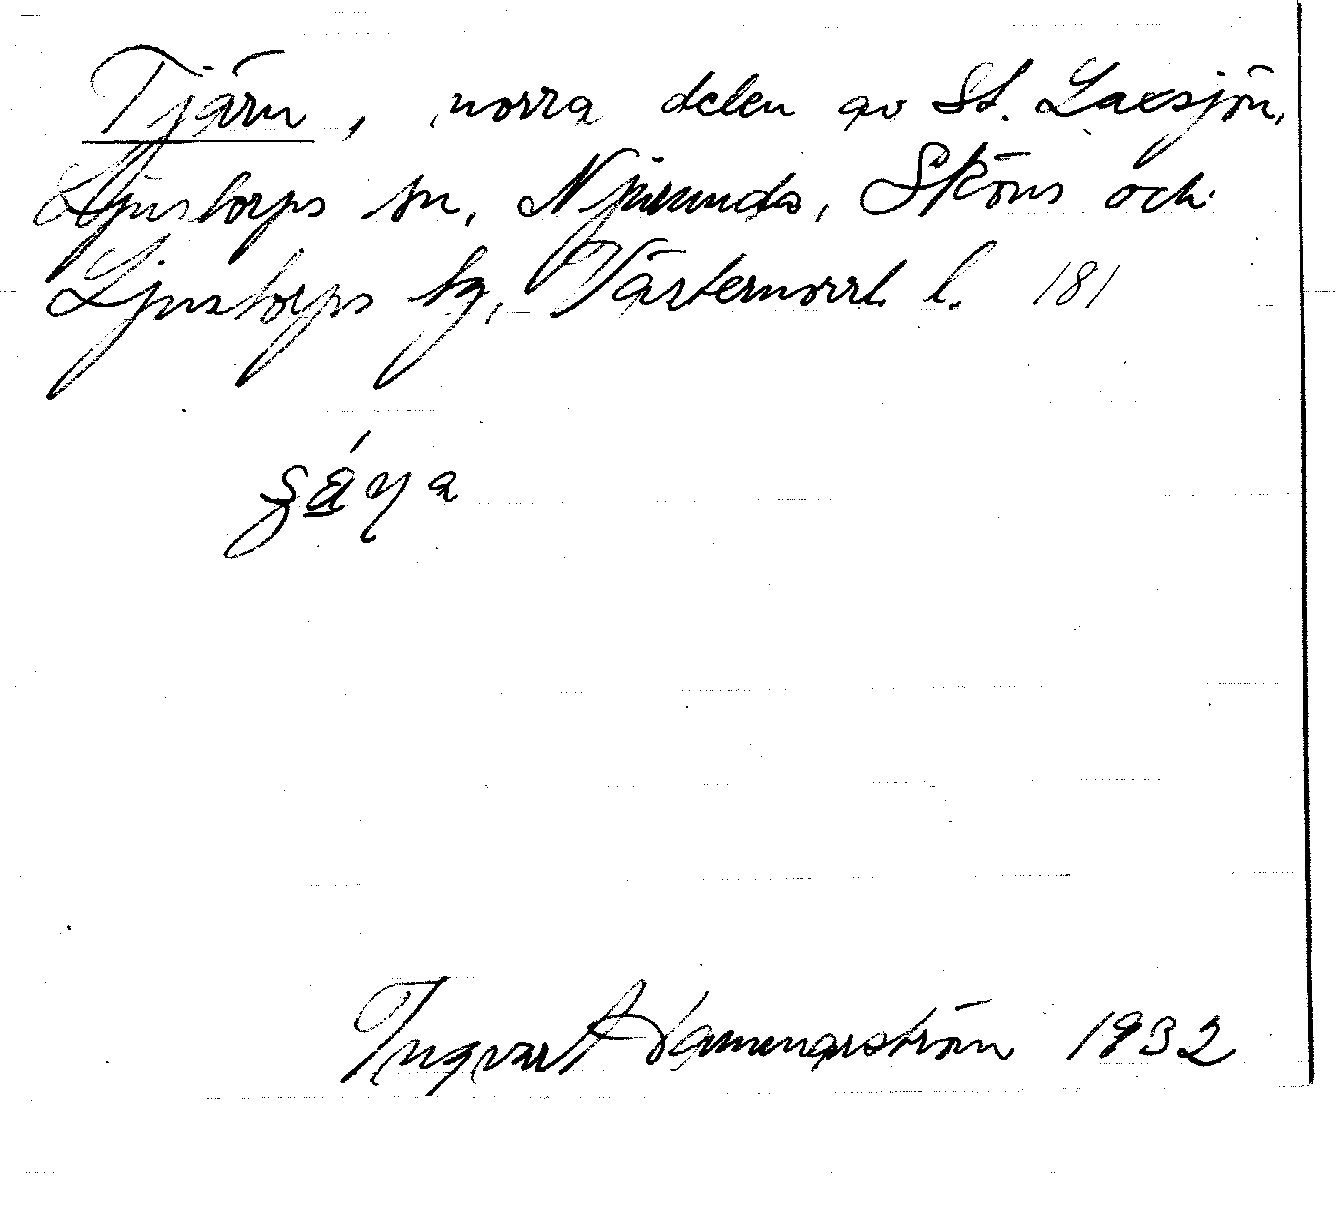 Tjärn, norra delen av St. Laxsjön,
Ljustorps sn, Njurunda, Sköns och
Ljustorps tg, Västernorrl. l. 181
Ingvar Hammarström 1932